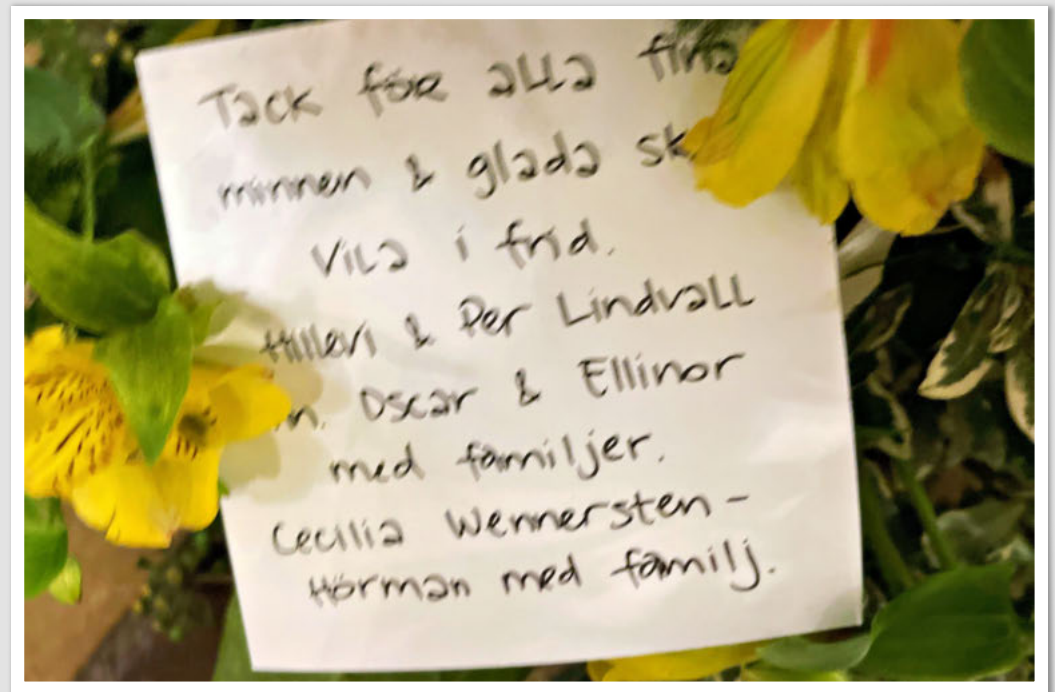 Tack för alla fina
minnen & glada
Vila i frid.
Hillevi & Per Lindvall
Oscar & Ellinor
med familjer.
Cecilia Wennersten-
Hörman med familj.